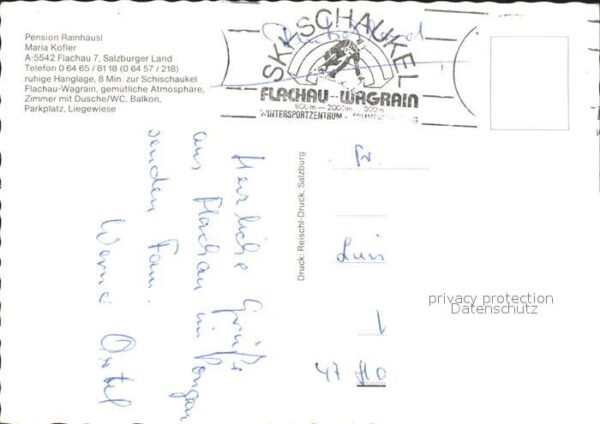 Pension Rainhäusl
Maria Kofler
A-5542 Flachau 7, Salzburger Land
Telefon 0 64 65 / 81 18 (0 64 57 / 218)
ruhige Hanglage, 8 Min. zur Schischaukel
Flachau-Wagrain, gemütliche Atmosphäre,
Zimmer mit Dusche/WC, Balkon,
Parkplatz, Liegewiese
SKISCHAUKEL
FLACHAU-WAGRAIN
900m - 2000m
WINTERSPORTZENTRUM
Herzliche Grüße
aus Flachau im Pongau
senden Fam.
Werner
Druck: Reischl-Druck, Salzburg
Luis
privacy protection
Datenschutz